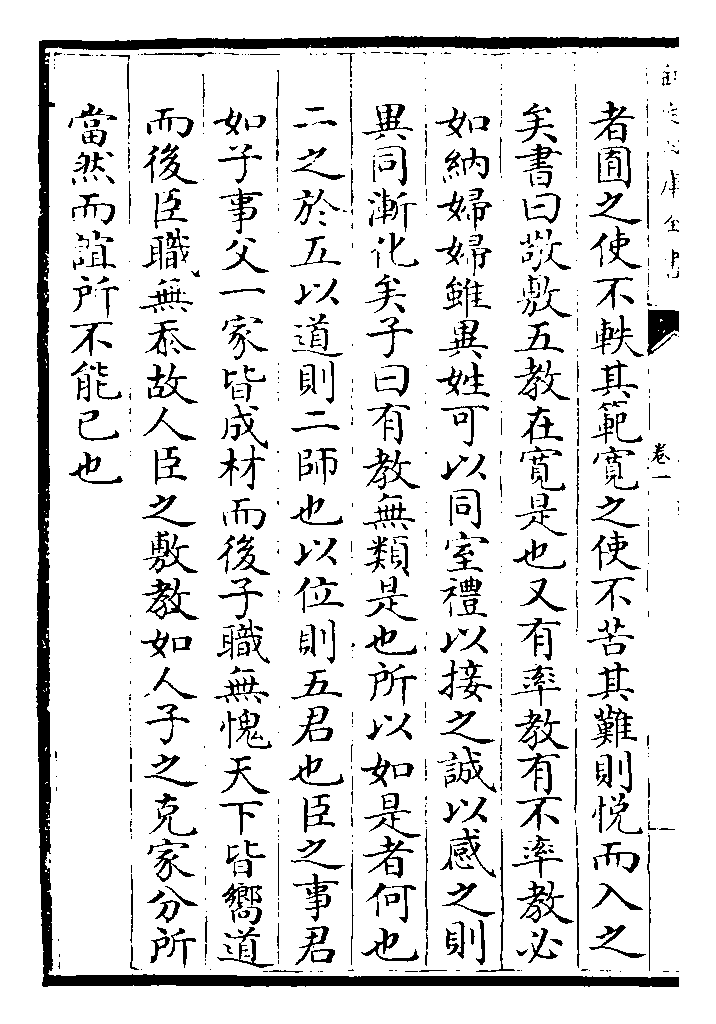 欽定四庫全書
卷一
者囿之使不軼其範寛之使不苦其難則悦而入之
矣書曰敬敷五教在寛是也又有率教有不率教必
如納婦婦雖異姓可以同室禮以接之誠以感之則
異同漸化矣子曰有教無類是也所以如是者何也
二之於五以道則二師也以位則五君也臣之事君
如子事父一家皆成材而後子職無愧天下皆嚮道
而後臣職無忝故人臣之敷教如人子之克家分所
當然而誼所不能已也